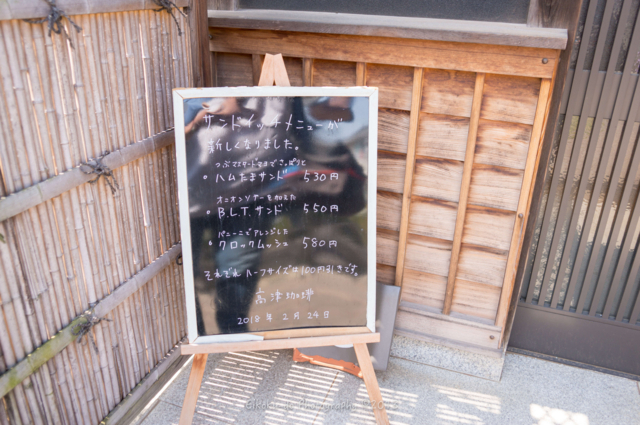 サンドイッチメニューが
新しくなりました。
つぶマスタードマヨでさっぱりと
ハムたまサンド 530円
オニオンソテーを加えた
B.L.T.サンド 550円
パニーニでアレンジした
クロックムッシュ 580円
それぞれハーフサイズは100円引きです。
高津珈琲
2018年2月24日